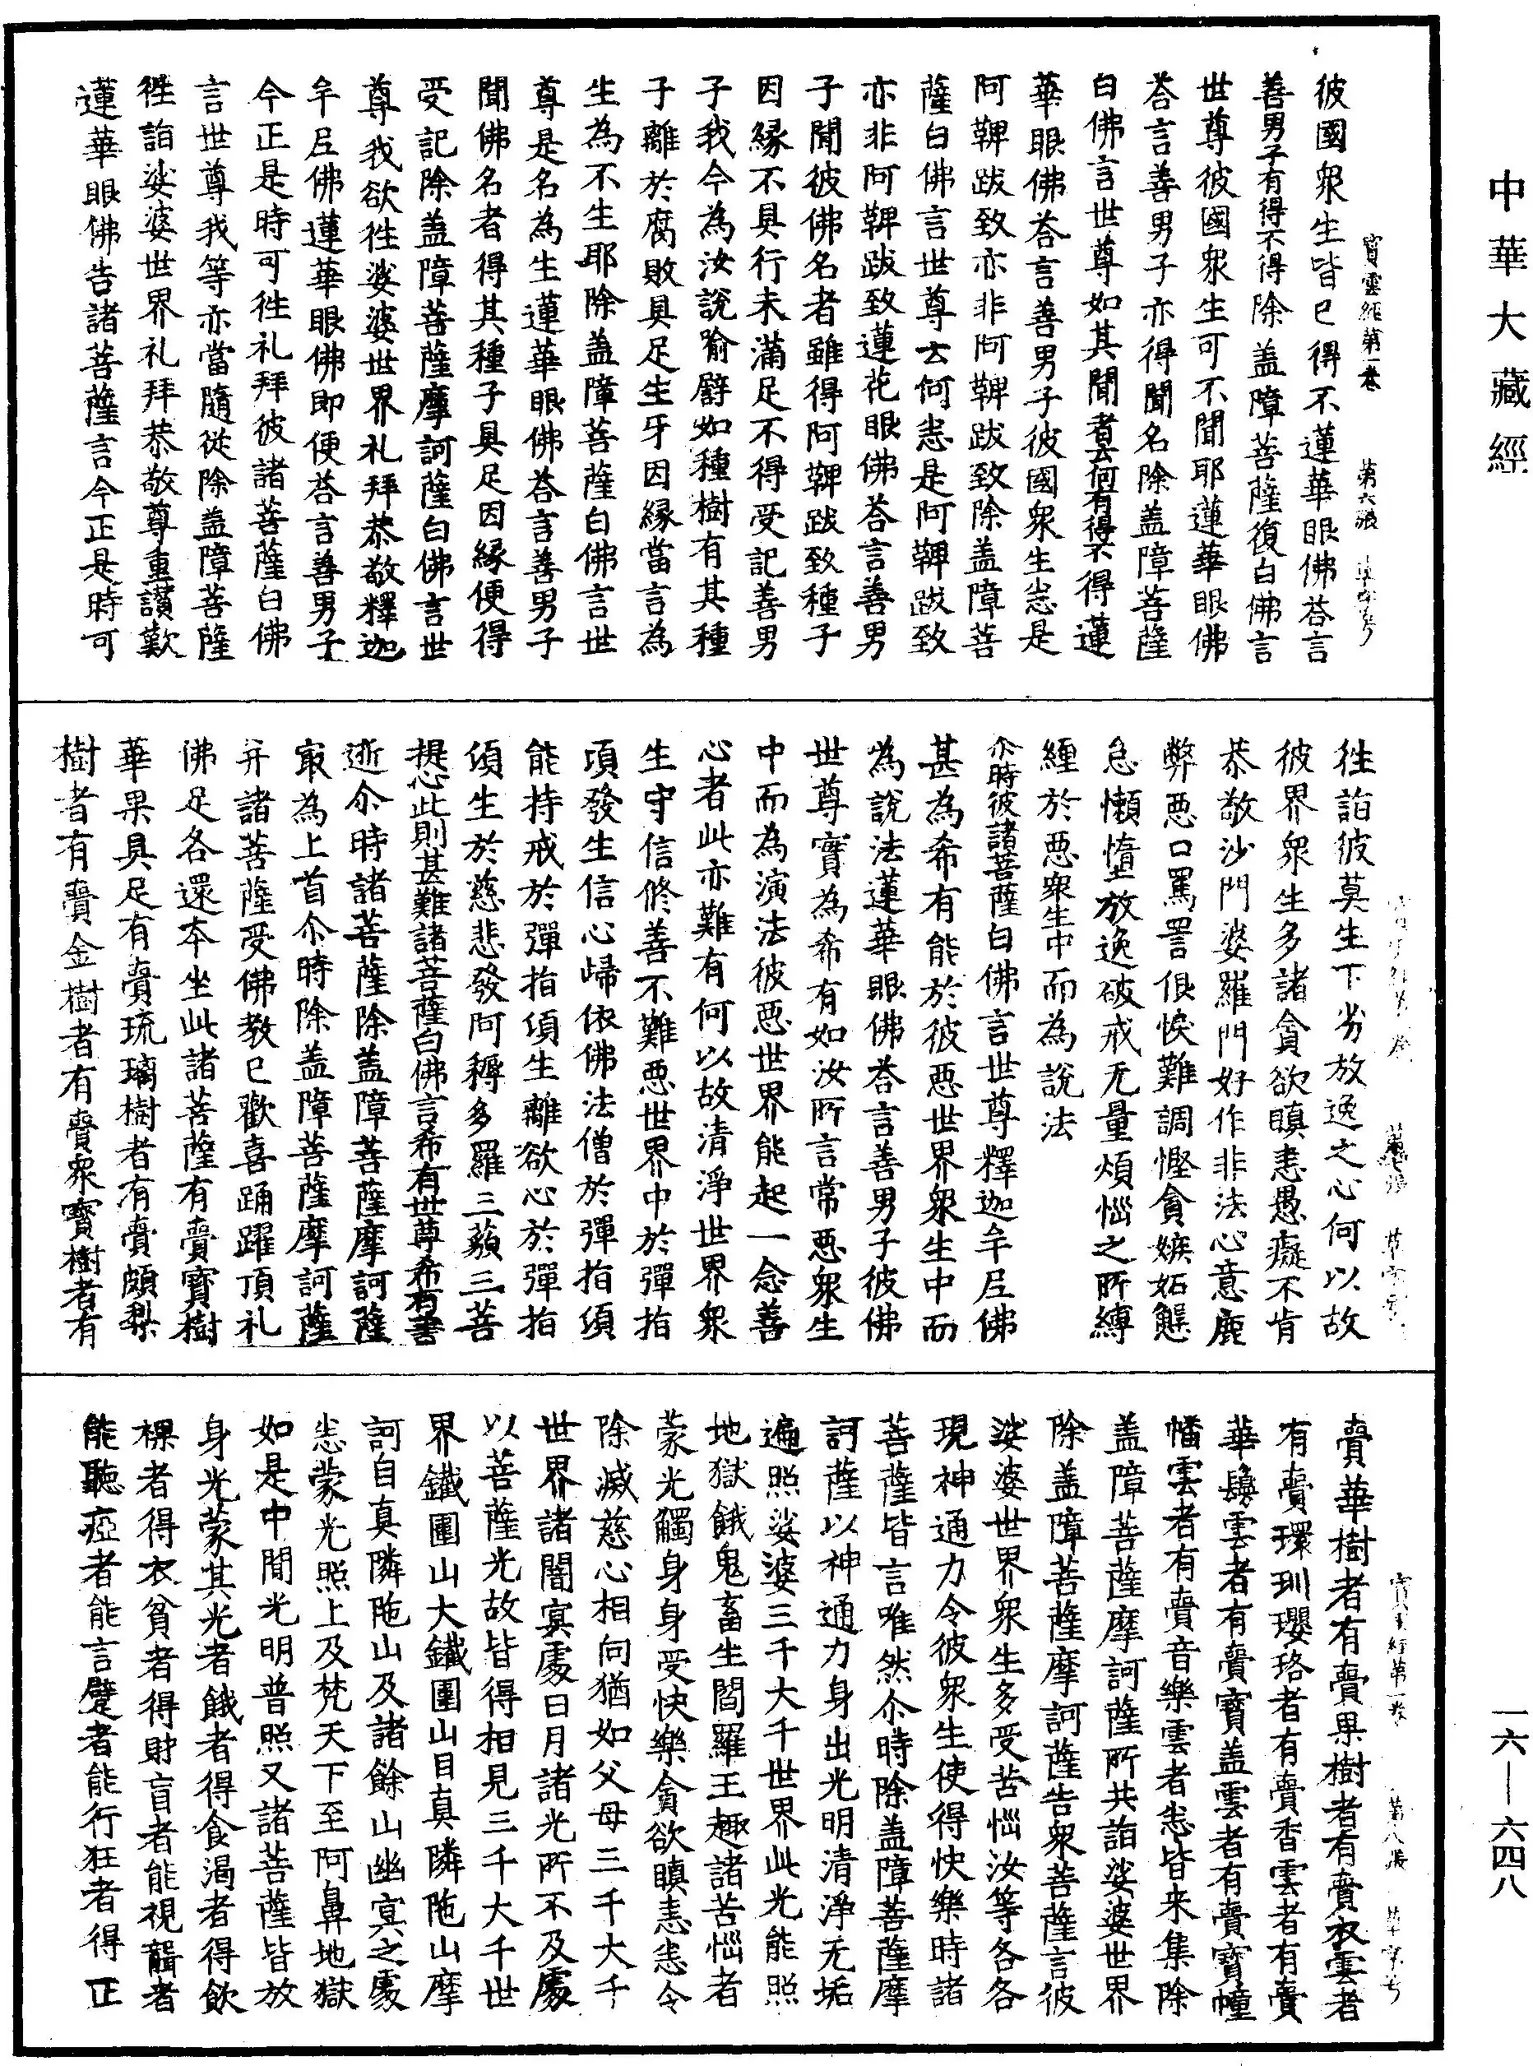 中華大藏經
寶雲經第一卷 第六張
彼國眾生皆已得不蓮華眼佛荅言
善男子有得不得除盖障菩薩復白佛言
世尊彼國眾生可不聞耶蓮華眼佛
荅言善男子亦得聞名除盖障菩薩
白佛言世尊如其聞者云何有得不得蓮
華眼佛荅言善男子彼國眾生悉是
阿鞞跋致亦非阿鞞跋致除盖障菩
薩白佛言世尊云何悉是阿鞞跋致
亦非阿鞞跋致蓮花眼佛荅言善男
子聞彼佛名者雖得阿鞞跋致種子
因緣不具行未滿足不得受記善男
子我今為汝說喻譬如種樹有其種
子離於腐敗具足生牙因緣當言為
生為不生耶除盖障菩薩白佛言世
尊是名為生蓮華眼佛荅言善男子
聞佛名者得其種子具足因緣便得
受記除盖障菩薩摩訶薩白佛言世
尊我欲往娑婆世界礼拜恭敬釋迦
牟尼佛蓮華眼佛即便荅言善男子
今正是時可往礼拜彼諸菩薩白佛
言世尊我等亦當隨從除盖障菩薩
徃詣娑婆世界礼拜恭敬尊重讃歎
蓮華眼佛告諸菩薩言今正是時可
徃詣彼莫生下劣放逸之心何以故
彼界眾生多諸貪欲瞋恚愚癡不肯
恭敬沙門婆羅門好作非法心意麁
弊惡口罵詈佷悷難調慳貪嫉妬懈
怠懶憜放逸破戒无量煩惱之所縛
纏於惡眾生中而為說法
尒時彼諸菩薩白佛言世尊釋迦牟尼佛
甚為希有能於彼惡世界眾生中而
為說法蓮華眼佛荅言善男子彼佛
世尊實為希有如汝所言常惡眾生
中而為演法彼惡世界能起一念善
心者此亦難有何以故清淨世界眾
生守信修善不難惡世界中於彈指
頃發生信心歸依佛法僧於彈指須
能持戒於彈指須生離欲心於彈指
須生於慈悲發阿耨多羅三藐三菩
提心此則甚難諸菩薩白佛言希有世尊希有善
逝尒時諸菩薩除盖障菩薩摩訶薩
㝡為上首尒時除盖障菩薩摩訶薩
并諸菩薩受佛教已歡喜踊躍頂礼
佛足各還本坐此諸菩薩有賷寶樹
華果具足有賷琉璃樹者有賷頗梨
樹者有賷金樹者有賷眾寶樹者有
寶雲經第一卷 第八張
賷華樹者有賷果樹者有賷衣雲者
有賷環玔瓔珞者有賷香雲者有賷
華鬘雲者有賷寶盖雲者有賷寶幢
幡雲者有賷音樂雲者悉皆来集除
盖障菩薩摩訶薩所共詣娑婆世界
除盖障菩薩摩訶薩告眾菩薩言彼
娑婆世界眾生多受苦惱汝等各各
現神通力令彼眾生使得快樂時諸
菩薩皆言唯然尒時除盖障菩薩摩
訶薩以神通力身出光明清淨无垢
遍照娑婆三千大千世界此光能照
地獄餓鬼畜生閻羅王趣諸苦惱者
蒙光觸身身受快樂貪欲瞋恚悉令
除滅慈心相向猶如父母三千大千
世界諸闇冥處日月諸光所不及處
以菩薩光故皆得相見三千大千世
界鐵圍山大鐵圍山目真隣陁山摩
訶目真隣陁山及諸餘山幽冥之處
悉蒙光照上及梵天下至阿鼻地獄
如是中閒光明普照又諸菩薩皆放
身光蒙其光者餓者得食渴者得飲
裸者得衣貧者得財盲者能視聾者
能聽瘂者能言躄者能行狂者得正
一六—六四八